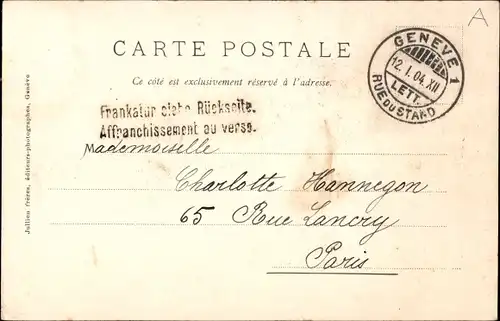 A
CARTE POSTALE
Ce côté est exclusivement réservé à l'adresse.
GENEVE 1
12.I.04.XII
LETT.
RUE DU STAND
Frankatur siehe Rückseite.
Affranchissement au verso.
Mademoiselle
Charlotte Hannegon
65 Rue Lancry
Paris
Jullien frères, éditeurs-photographes, Genève